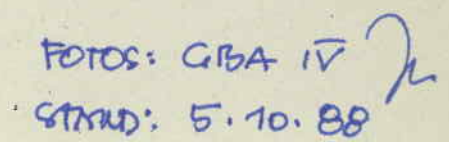 FOTOS: GBA IV
STAND: 5.10.88